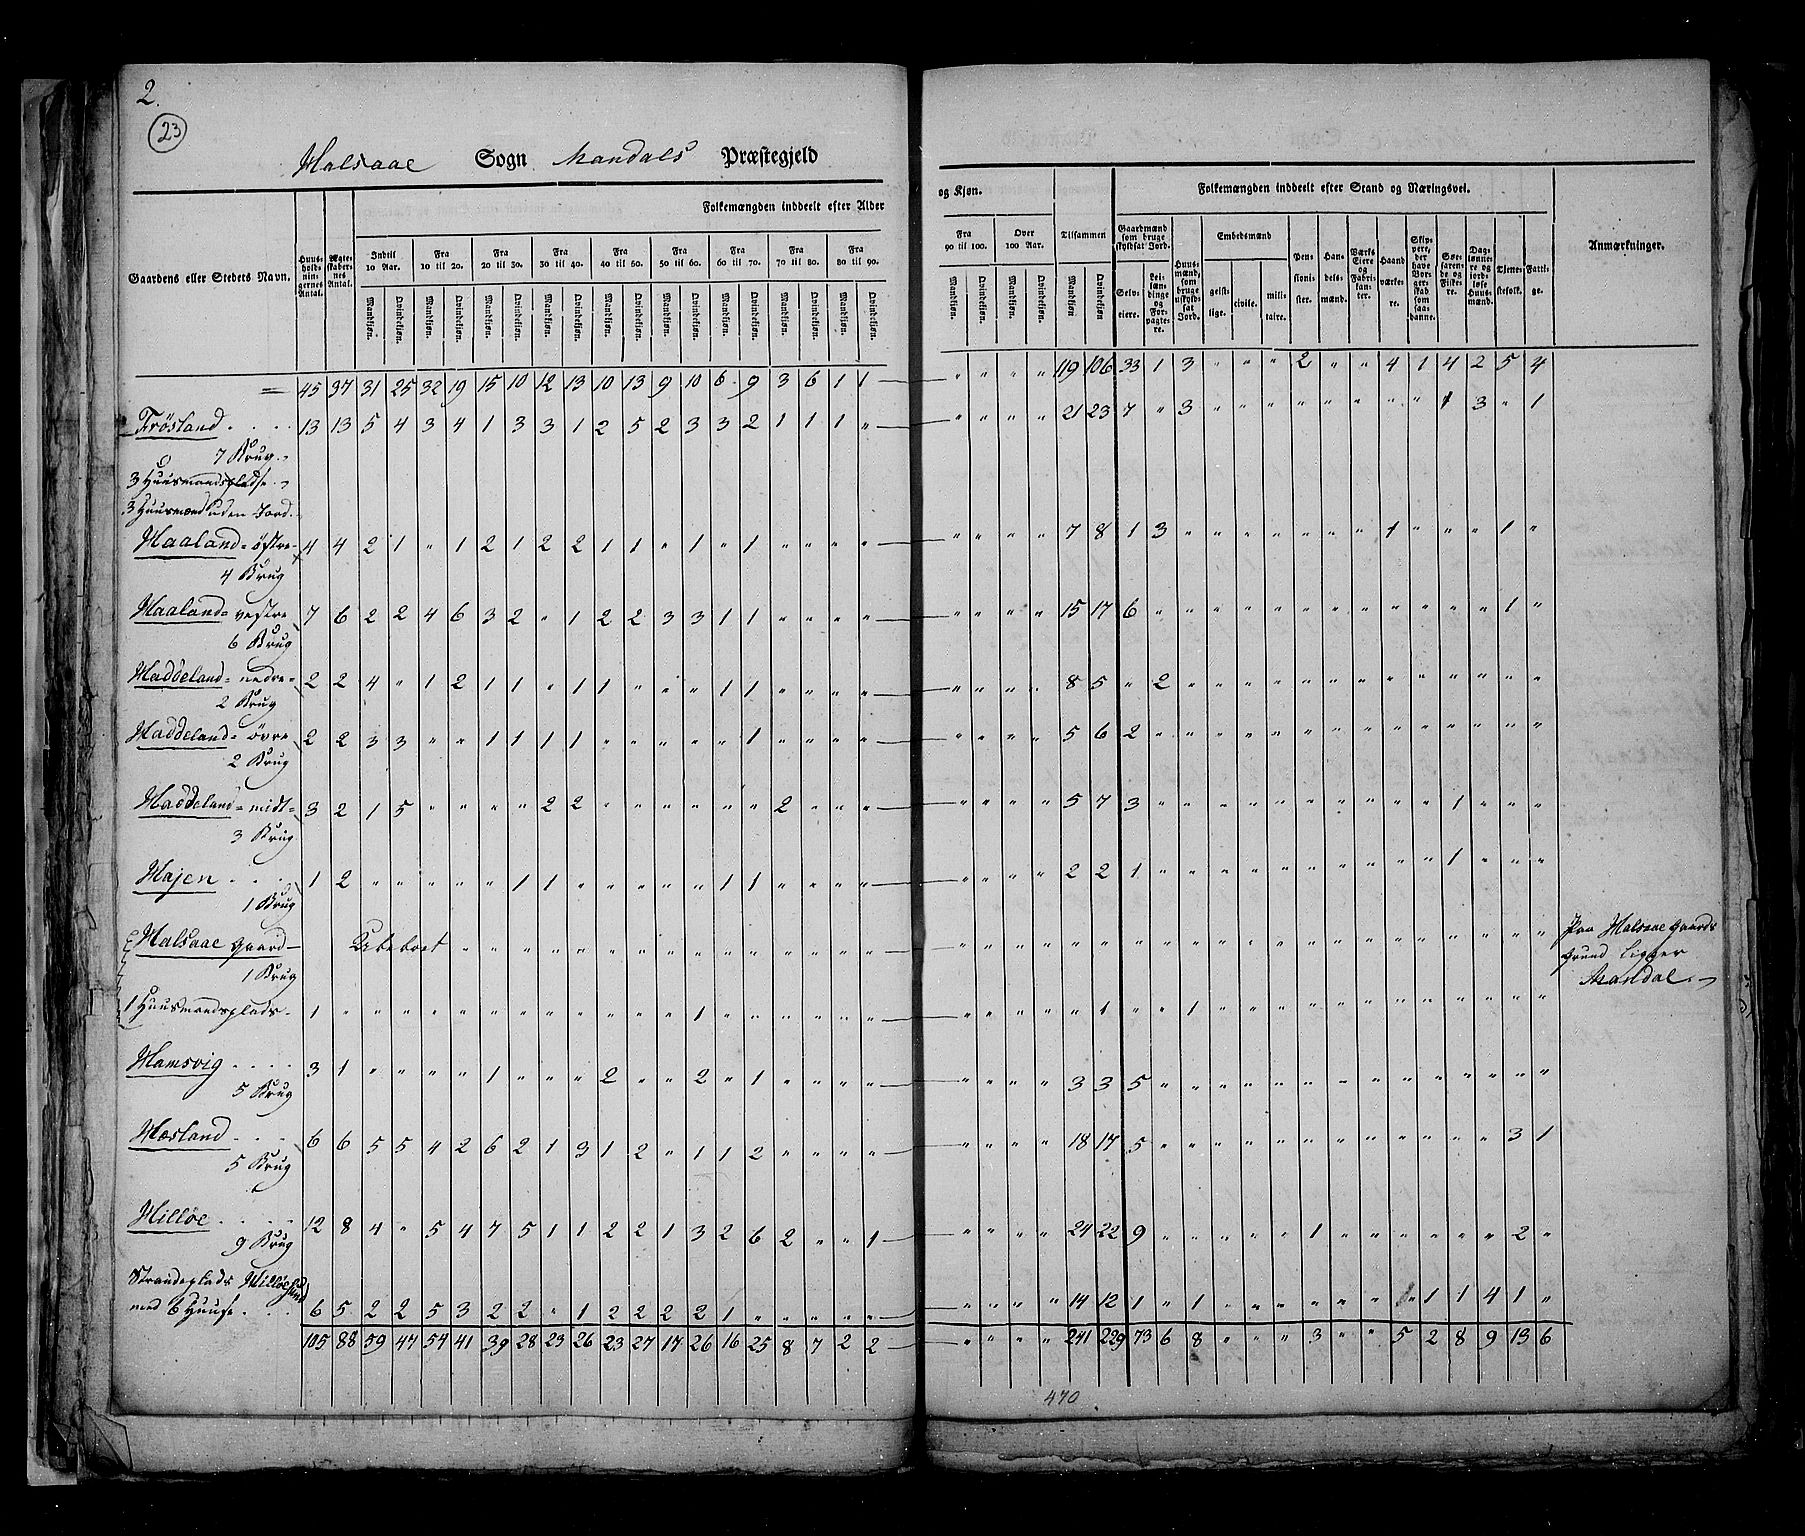 2.
23
Halsaae Sogn Mandals Præstegjeld
Folkemængden inddeelt efter Alder og Kjøn. Folkemængden inddeelt efter Stand og Næringsvei.
Gaardens eller Stedets Navn. Huusholdningernes Antal. Ægteskabernes Antal. Indtil 10 Aar. Fra 10 til 20. Fra 20 til 30. Fra 30 til 40. Fra 40 til 50. Fra 50 til 60. Fra 60 til 70. Fra 70 til 80. Fra 80 til 90. Fra 90 til 100. Over 100 Aar. Tilsammen Gaardmænd som bruge skyldsat Jord. Huusmænd, som bruge uskyldsat Jord. Embedsmænd Pensionister. Handelsmænd. Værks Eiere og Fabrikanter. Haandværkere. Skippere, der have Borgerskab som saadanne. Søefarende og Fiskere. Daglønnere og jordløse Huusmænd. Tjenestefolk. Fattige. Anmærkninger.
Mandkjøn. Qvindekjøn. Mandkjøn. Qvindekjøn. Mandkjøn. Qvindekjøn. Mandkjøn. Qvindekjøn. Mandkjøn. Qvindekjøn. Mandkjøn. Qvindekjøn. Mandkjøn. Qvindekjøn. Mandkjøn. Qvindekjøn. Mandkjøn. Qvindekjøn. Mandkjøn. Qvindekjøn. Mandkjøn. Qvindekjøn. Mandkjøn. Qvindekjøn. Selveiere. Leilændinge og Forpagtere. geistlige. civile. militaire.
= 45 37 31 25 32 19 15 10 12 13 10 13 9 10 6 9 3 6 1 1 — " " " " 119 106 33 1 3 " " " 2 " " 4 1 4 2 5 4
Frösland . . . . 13 13 5 4 3 4 1 3 3 1 2 5 2 3 3 2 1 1 1 " — " " " " 21 23 7 " 3 " " " " " " " " 1 3 " 1
7 Brug.
3 Huusmandspladse.
3 Huusmænd uden Jord.
Haaland = östre 4 4 2 1 " 1 2 1 2 2 1 1 " 1 " 1 " " " " — " " " " 7 8 1 3 " " " " " " " 1 " " " 1 "
4 Brug
Haaland = vestre 7 6 2 2 4 6 3 2 " 1 2 2 3 3 1 1 " " " " — " " " " 15 17 6 " " " " " " " " " " " " 1 "
6 Brug
Haddeland = nedre = 2 2 4 " 1 2 1 1 " 1 1 " " " 1 1 " " " " — " " " " 8 5 " 2 " " " " " " " " " " " " "
2 Brug
Haddeland = övre 2 2 3 3 " " 1 1 1 1 " " " " " 1 " " " " — " " " " 5 6 2 " " " " " " " " " " " " " "
2 Brug
Haddeland = midt = 3 2 1 5 " " " " 2 2 " " " " " " 2 " " " — " " " " 5 7 3 " " " " " " " " " " 1 " " "
3 Brug
Hajen . . . . 1 2 " " " " " 1 1 " " " " " 1 1 " " " " — " " " " 2 2 1 " " " " " " " " " " 1 " " "
1 Brug
Halsaae Gaard — Ubeboet " " " " " " " " " " " " " " " — " " " " " " " " " " " " " " " " " " " " " Paa Halsaae Gaards
1 Brug Grund ligger
Mandal.
1 Huusmandsplads. 1 " " " " " " " " " " " " 1 " " " " " " — " " " " " 1 " " 1 " " " " " " " " " " " "
Hamsvig . . . . 3 1 " " " " 1 " " " 2 " " 2 " 1 " " " " — " " " " 3 3 5 " " " " " " " " " " " " " "
5 Brug
Hæsland . . . 6 6 5 5 4 2 6 2 1 3 1 2 " 1 1 2 " " " " — " " " " 18 17 5 " " " " " " " " " " " " 3 1
5 Brug
Hilløe . . . . 12 8 4 " 5 4 7 5 1 1 2 2 1 3 2 6 2 " " 1 — " " " " 24 22 9 " " " " " " 1 " " " " " 2 "
9 Brug
Strandeplads Hilløesund
med 6 Huuse. . . 6 5 2 2 5 3 2 2 " 1 2 2 2 2 1 " " " " " — " " " " 14 12 1 " 1 " " " " " " " 1 1 4 1 "
105 88 59 47 54 41 39 28 23 26 23 27 17 26 16 25 8 7 2 2 — " " " " 241 229 73 6 8 " " " 3 " " 5 2 8 9 13 6
470